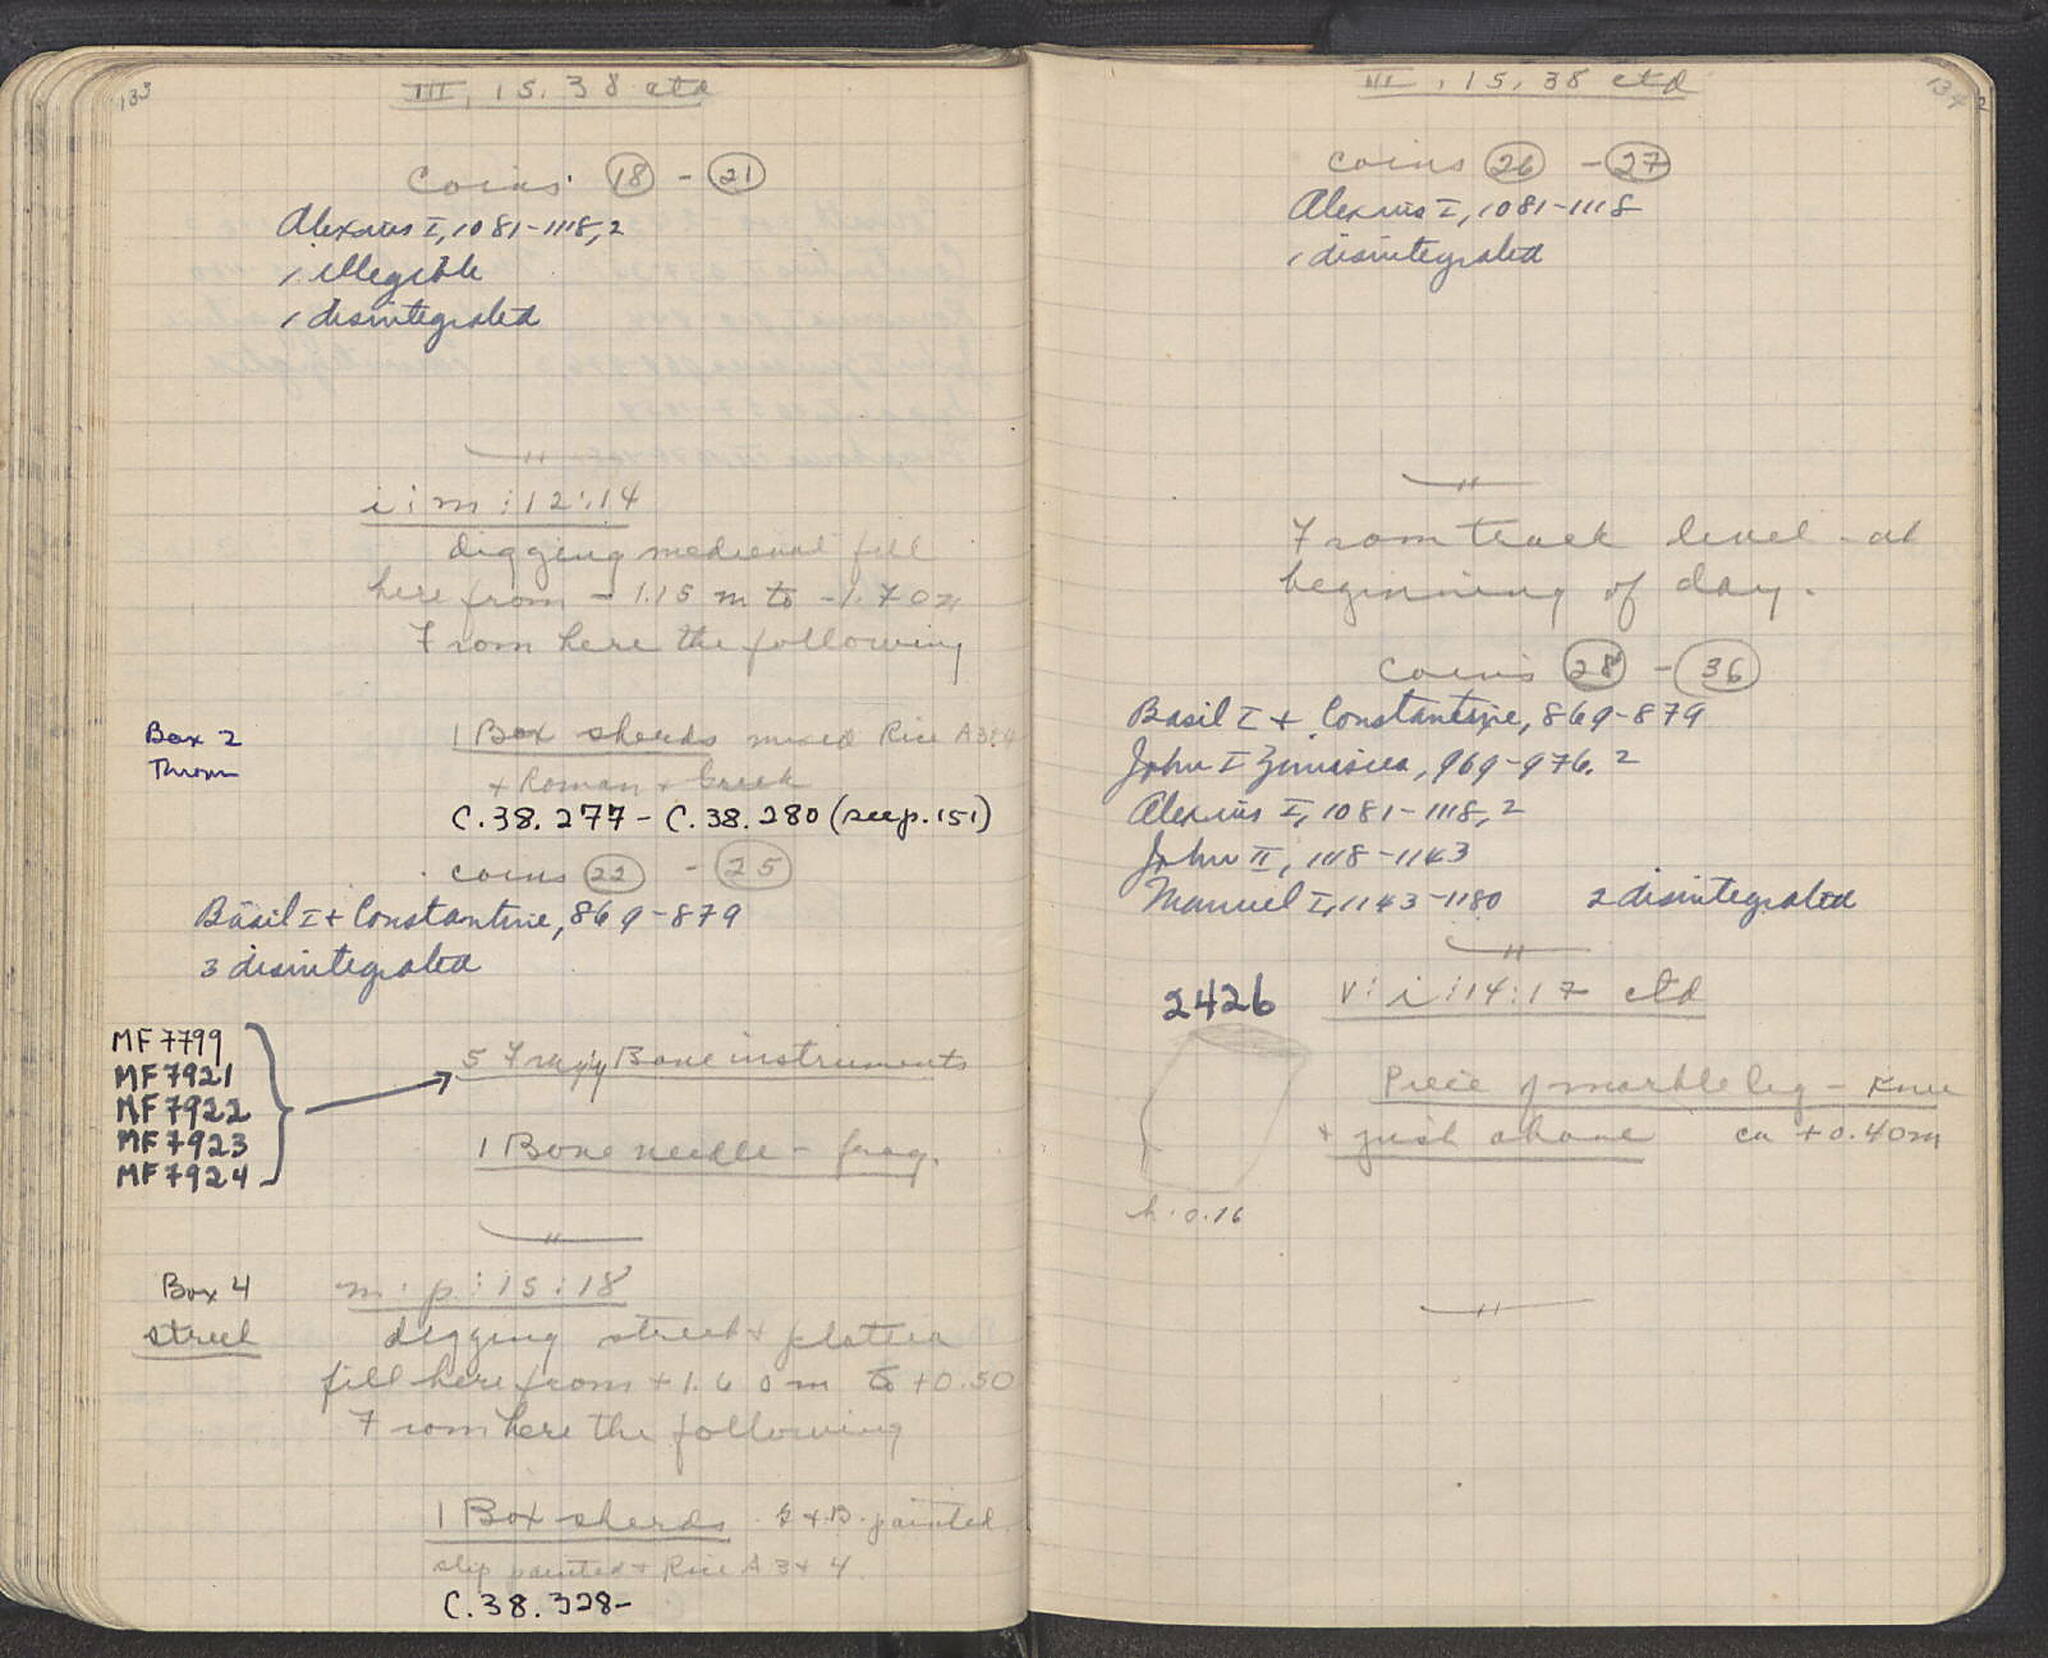 133
III, 15. 38 ctd
Coins 18 - 21
Alexius I, 1081-1118, 2
1 illegible
1 disintegrated
i:m:12:14
digging medieval fill
here from -1.15 m to -1.70 m
From here the following
Box 2
Throm
1 Box sherds mixed Rice A 3+4
+ Roman + Greek
C.38.277 - C.38.280 (see p. 151)
coins 22 - 25
Basil I + Constantine, 869-879
3 disintegrated
MF 7799
MF 7921
MF 7922
MF 7923
MF 7924
5 Frag'y Bone instruments
1 Bone needle - frag.
Box 4
street
m:p:15:18
digging street + plattea
fill here from +1.60 m to +0.50
From here the following
1 Box sherds G+B. painted
slip painted + Rice A 3+4
C.38.328-
134
III, 15, 38 ctd
coins 26 - 27
Alexius I, 1081-1118
1 disintegrated
From track level - at
beginning of day.
coins 28 - 36
Basil I + Constantine, 869-879
John I Zimisces, 969-976. 2
Alexius I, 1081-1118, 2
John II, 1118-1143
Manuel I, 1143-1180 2 disintegrated
2426
v:i:14:17 ctd
Piece of marble leg - Knee
+ just above ca +0.40m
h. 0.16